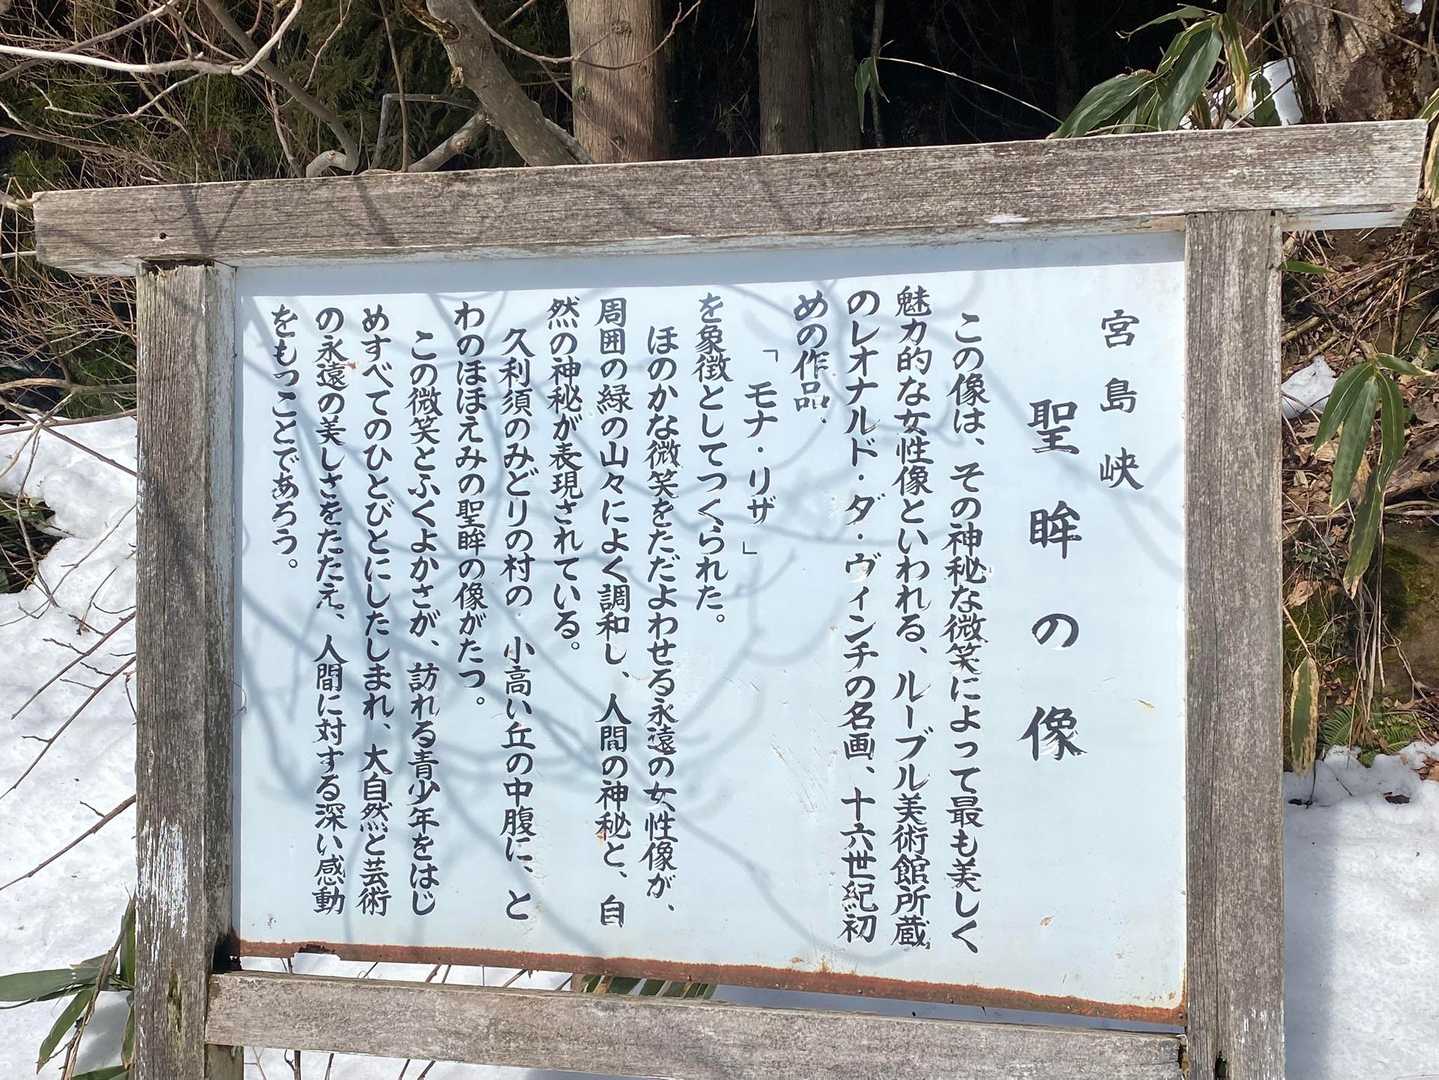 宮島峡
聖眸の像
この像は、その神秘な微笑によって最も美しく
魅力的な女性像といわれる、ルーブル美術館所蔵
のレオナルド・ダ・ヴィンチの名画、十六世紀初
めの作品.
「モナ・リザ」
を象徴としてつくられた。
ほのかな微笑をただよわせる永遠の女性像が、
周囲の緑の山々によく調和し、人間の神秘と、自
然の神秘が表現されている。
久利須のみどりの村の 小高い丘の中腹に、と
わのほほえみの聖眸の像がたつ。
この微笑とふくよかさが、訪れる青少年をはじ
めすべてのひとびとにしたしまれ、大自然と芸術
の永遠の美しさをたたえ、人間に対する深い感動
をもつことであろう。